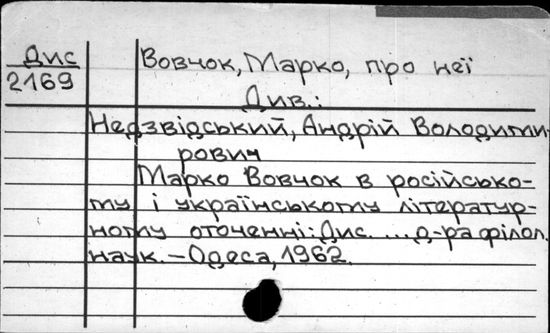 Дис
2169
Вовчок, Марко, про неї
Див.:
Недзвідський, Андрій Володими-
рович
Марко Вовчок в російсько-
му і українському літератур-
ному оточенні: Дис. ...д-ра філол.
наук. – Одеса, 1962.